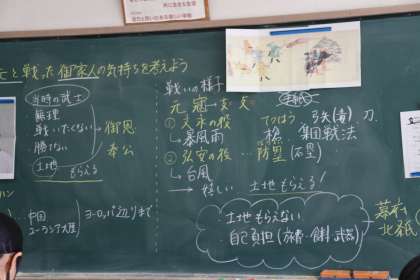 と戦った御家人の気持ちを考えよう
当時の武士
無理
戦いたくない
勝てない
土地 もらえる
御恩
奉公
戦いの様子
元寇
①文永の役
→暴風雨
てつはう 弓矢(毒) 刀
集団戦法
②弘安の役 … 防塁(石塁)
→台風
→ 嬉しい 土地もらえる!
土地もらえない
自己負担(旅費・食料・武器)
ハン
中国
ユーラシア大陸
ヨーロッパ辺りまで
幕府